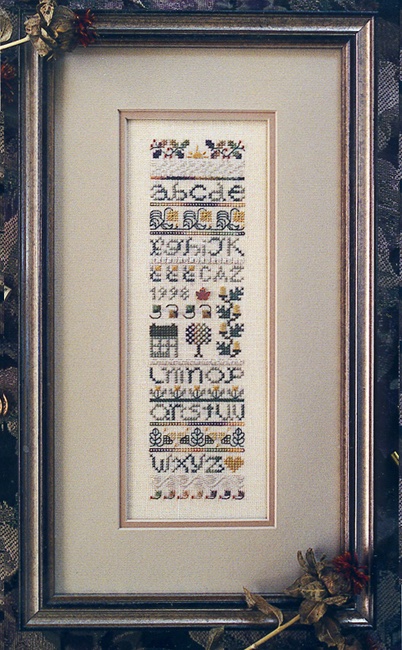 abcde
fghiJK
CAZ
1998
LmnoP
qrstuv
wxyz